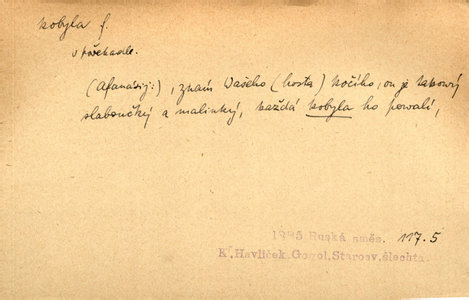 kobyla f.
v pořekadle.
(Afanásij:), znám Vašeho (hosta) kočího, on je takový
slaboučký a malinký, každá kobyla ho povalí,
1925 Ruská směs. 117.5
K. Havlíček, Gogol, Starosv. šlechta.